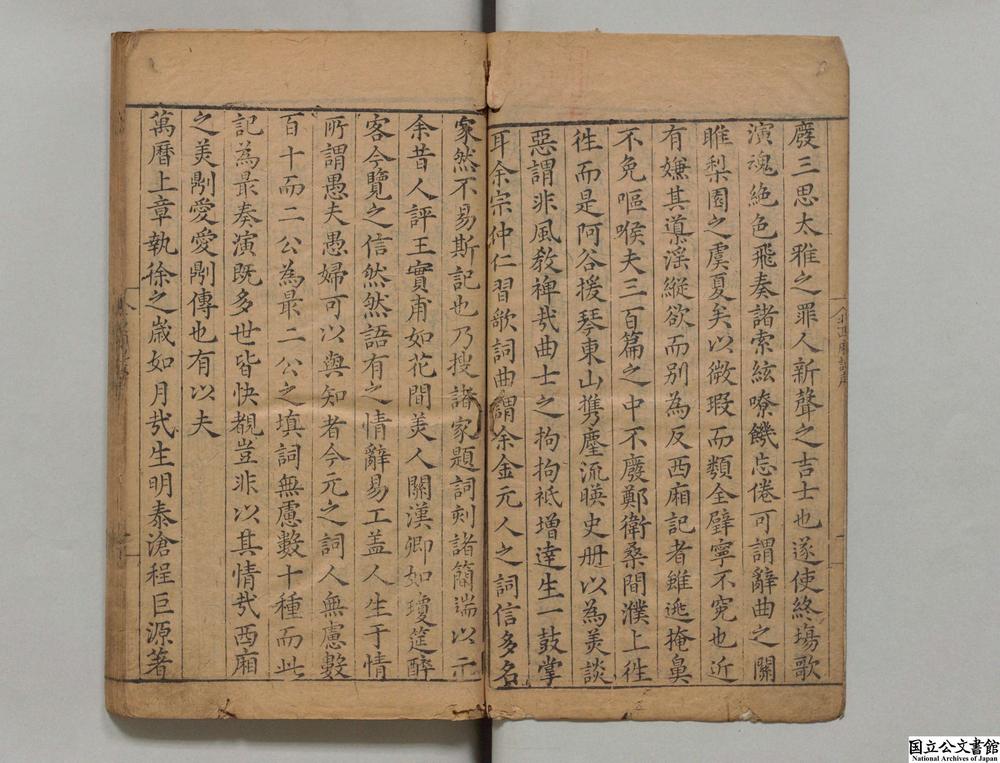 廢三思太雅之罪人新聲之吉士也遂使終塲歌
演魂絶色飛奏諸索絃嘹饑忘倦可謂辭曲之關
睢梨園之虞夏矣以微瑕而纇全壁寧不寃也近
有嫌其導淫縱欲而别為反西廂記者雖逃掩鼻
不免嘔喉夫三百篇之中不廢鄭衛桑間濮上徃
徃而是阿谷援琴東山擕塵流暎史册以為美談
惡謂非風敎裨㢤曲士之拘拘袛增達生一鼓掌
耳余宗仲仁習歌詞曲謂余金元人之詞信多名
家然不易斯記也乃搜諸家題詞刻諸簡端以示
余昔人評王實甫如花間美人關漢卿如瓊筵醉
客今覽之信然然語有之情辭易工盖人生于情
所謂愚夫愚婦可以與知者今元之詞人無慮數
百十而二公為最二公之填詞無慮數十種而此
記為最奏演既多世皆快覩豈非以其情㢤西廂
之美則愛愛則傳也有以夫
萬曆上章執徐之歲如月㢤生明泰滄程巨源著
国立公文書館
National Archives of Japan